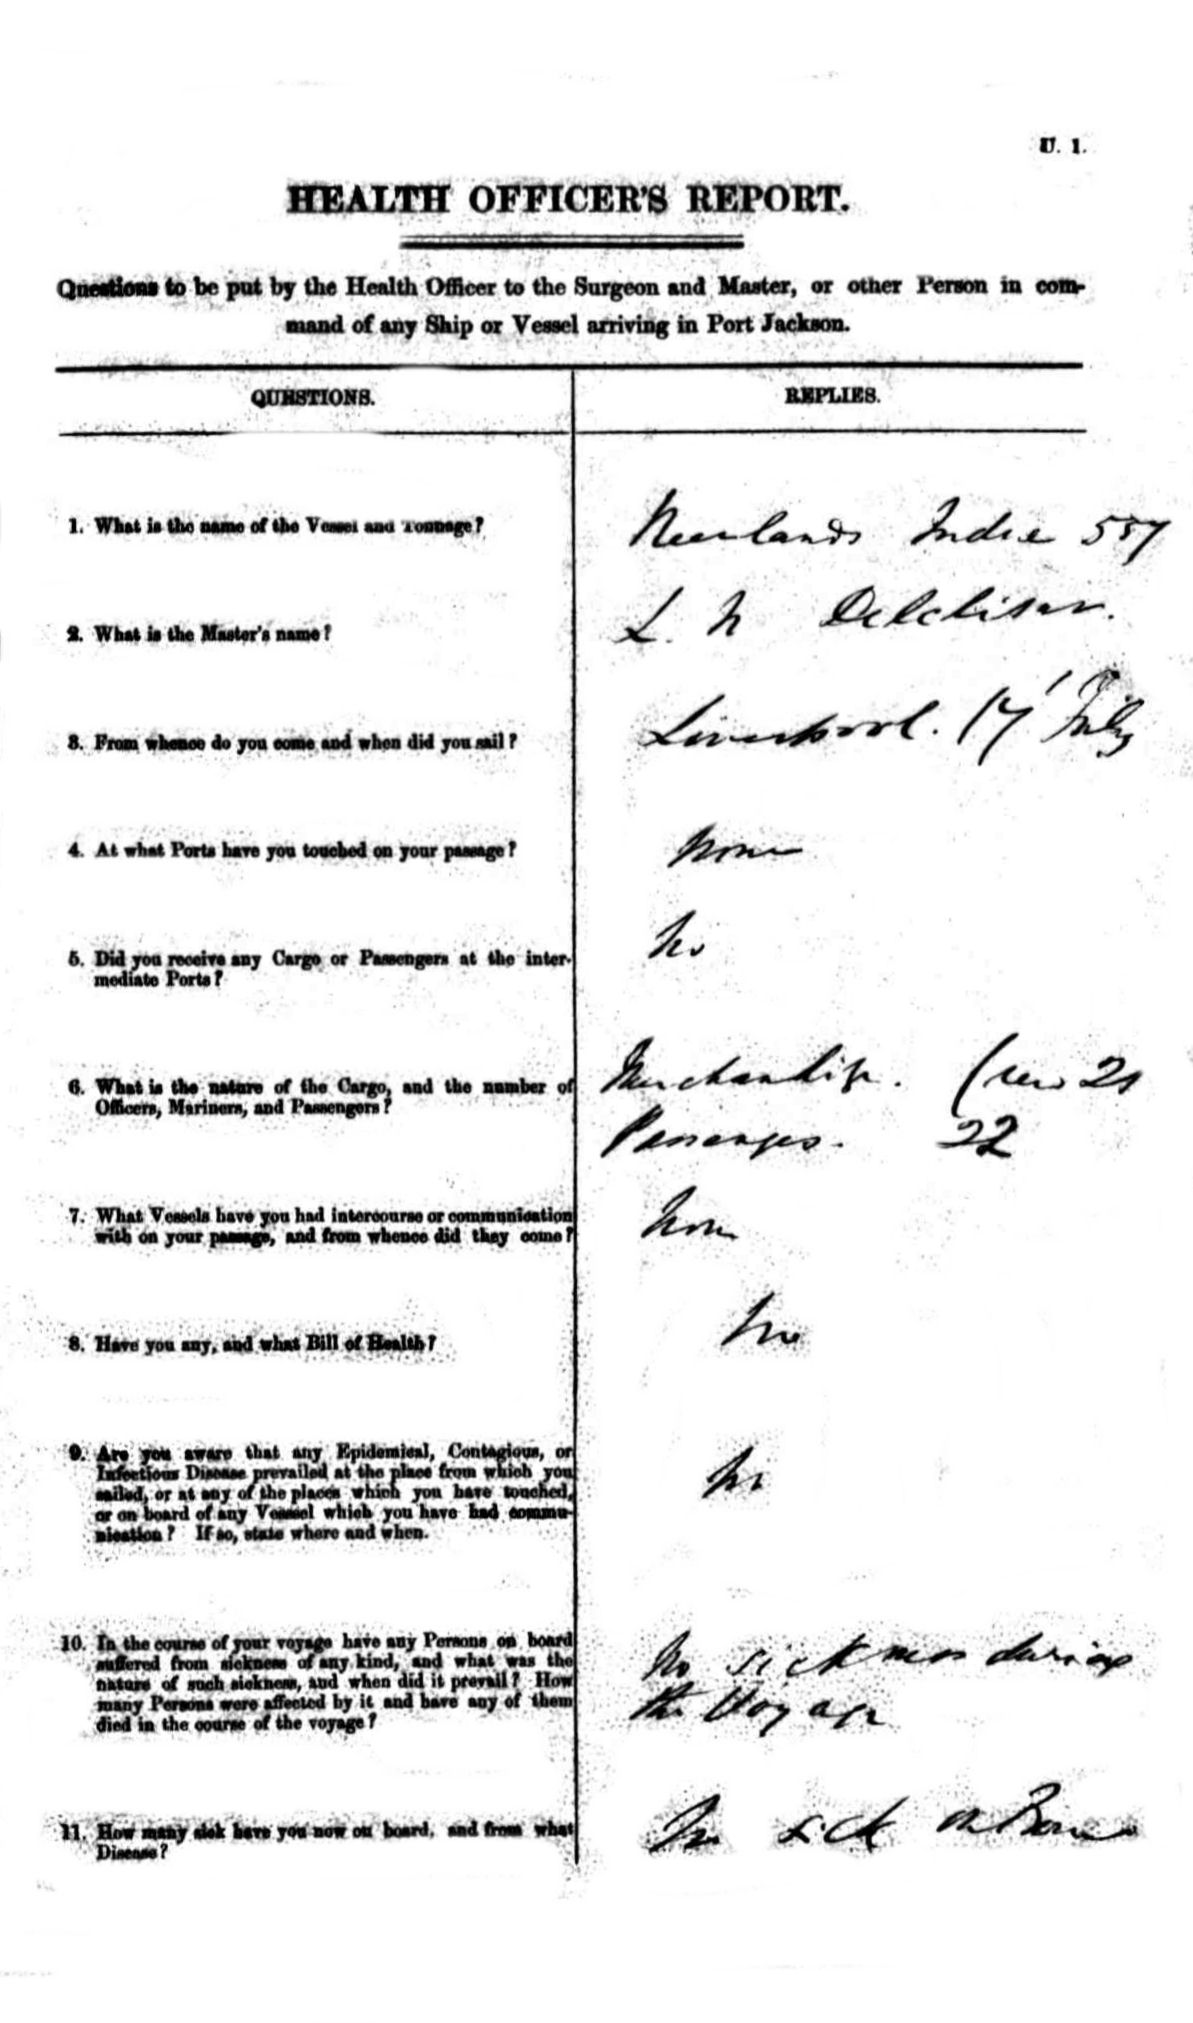 U. 1.
HEALTH OFFICER'S REPORT.
Questions to be put by the Health Officer to the Surgeon and Master, or other Person in com-
mand of any Ship or Vessel arriving in Port Jackson.
QUESTIONS.
REPLIES.
1. What is the name of the Vessel and Tonnage?
Neerlands Indie 557
2. What is the Master's name?
L. N
3. From whence do you come and when did you sail?
Liverpool. 17 July
4. At what Ports have you touched on your passage?
None
5. Did you receive any Cargo or Passengers at the inter-
mediate Ports?
No
6. What is the nature of the Cargo, and the number of
Officers, Mariners, and Passengers?
Merchandise. Crew 21
Passengers. 22
7. What Vessels have you had intercourse or communication
with on your passage, and from whence did they come?
None
8. Have you any, and what Bill of Health?
No
9. Are you aware that any Epidemical, Contagious, or
Infectious Disease prevailed at the place from which you
sailed, or at any of the places which you have touched,
or on board of any Vessel which you have had commu-
nication? If so, state where and when.
No
10. In the course of your voyage have any Persons on board
suffered from sickness of any kind, and what was the
nature of such sickness, and when did it prevail? How
many Persons were affected by it and have any of them
died in the course of the voyage?
No sickness during
the Voyage
11. How many sick have you now on board, and from what
Disease?
No sick on Board